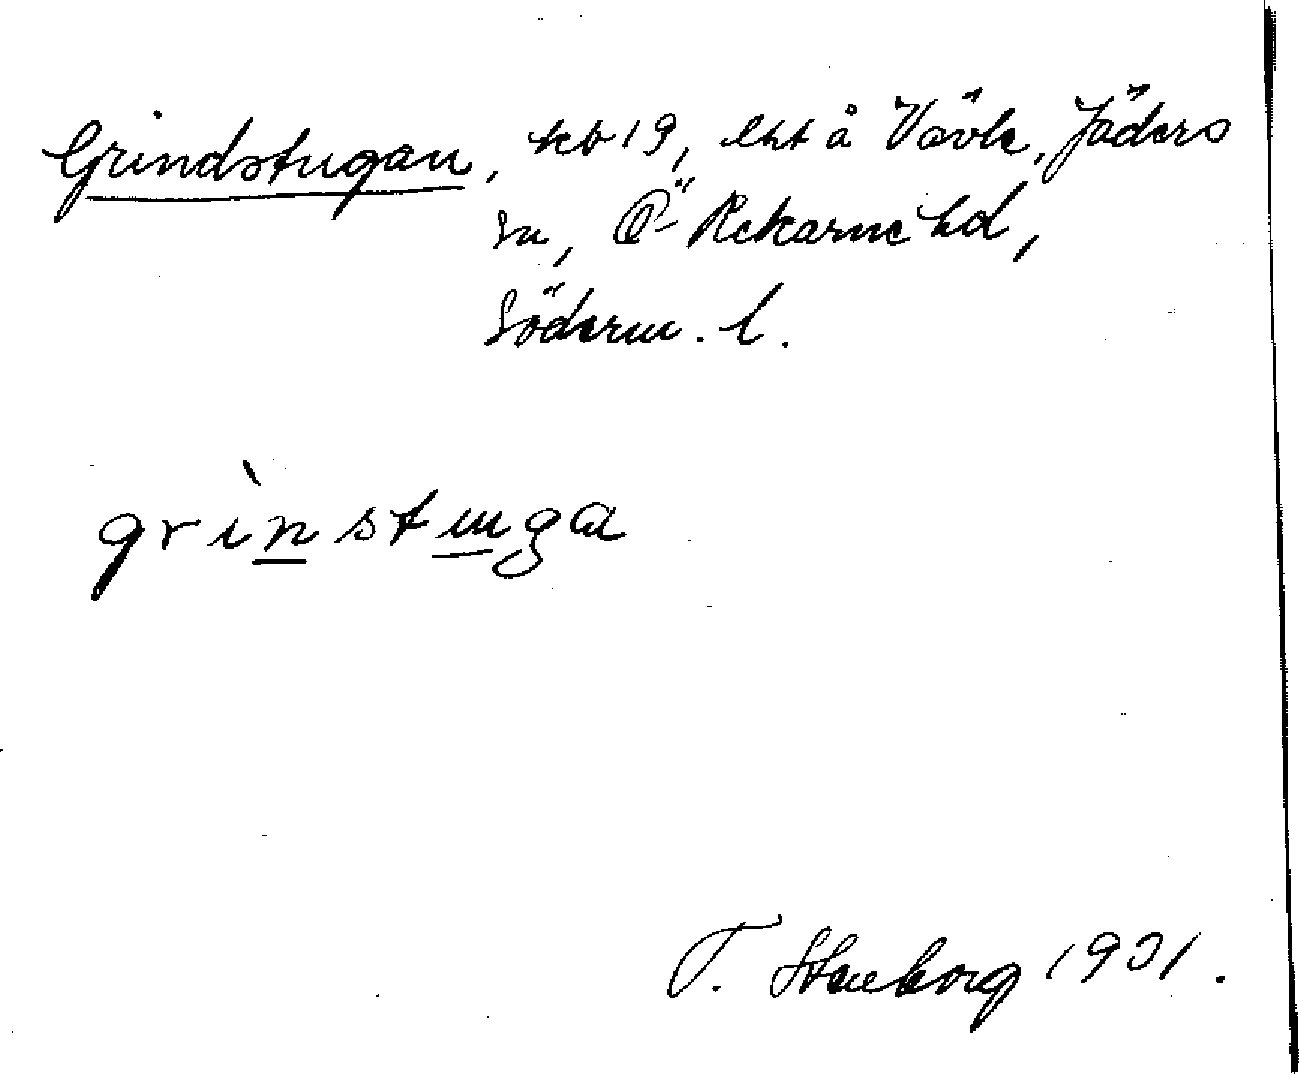 Grindstugan, kb 19, lht å Vävle, Jäders
sn, Ö Rekarne hd,
Söderm. l.
grìnstuga
T. Stenborg 1931.